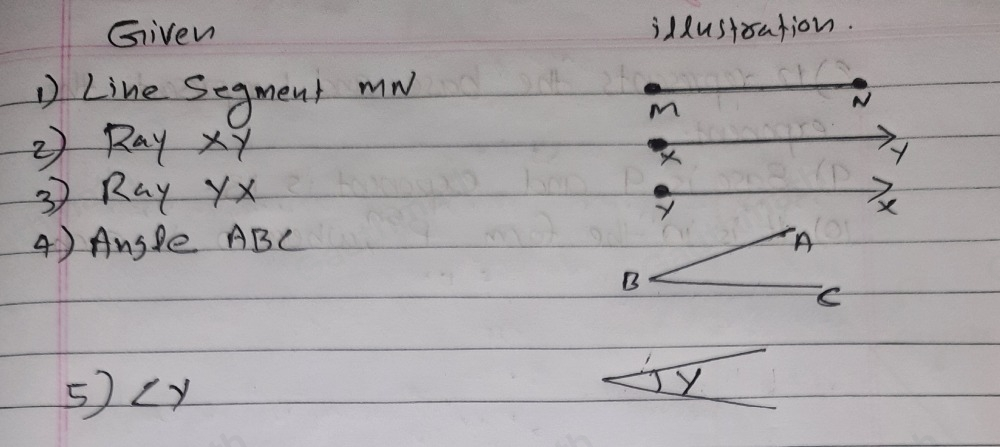 Given illustration.
1) Line Segment MN
M N
2) Ray XY
X Y
3) Ray YX
Y X
4) Angle ABC
A
B
C
5) ∠Y
Y